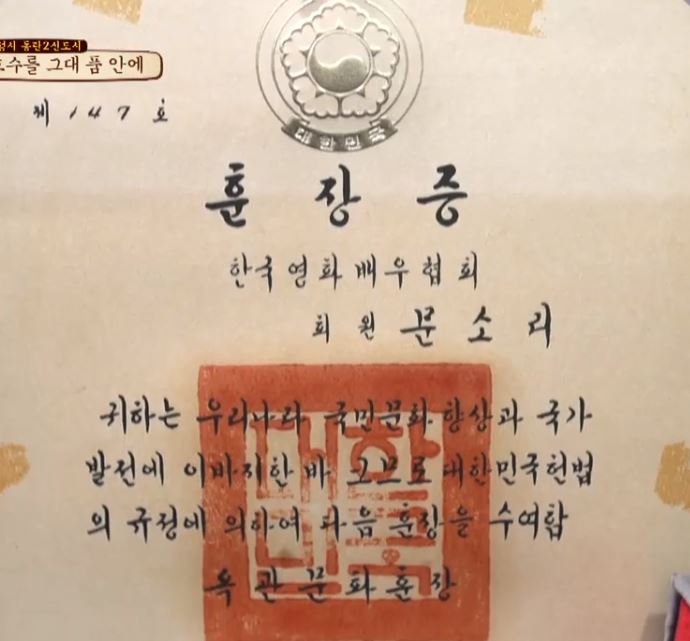 동탄2신도시
호수를 그대 품 안에
제 147 호
대한민국
훈장증
한국영화배우협회
회원 문소리
귀하는 우리나라 국민문화향상과 국가
발전에 이바지한 바 크므로 대한민국헌법
의 규정에 의하여 다음 훈장을 수여함
옥관문화훈장